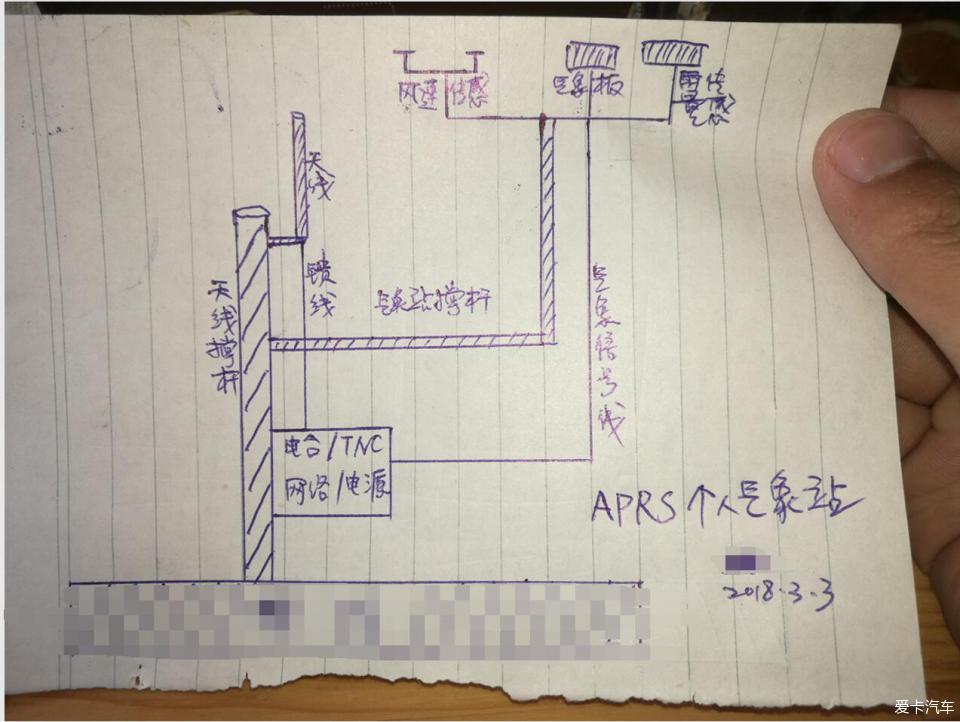 风速传感
气象板
雨量传感
天线
馈线
天线撑杆
气象站撑杆
气象信号线
电台/TNC
网络/电源
APRS个人气象站
2018.3.3
爱卡汽车